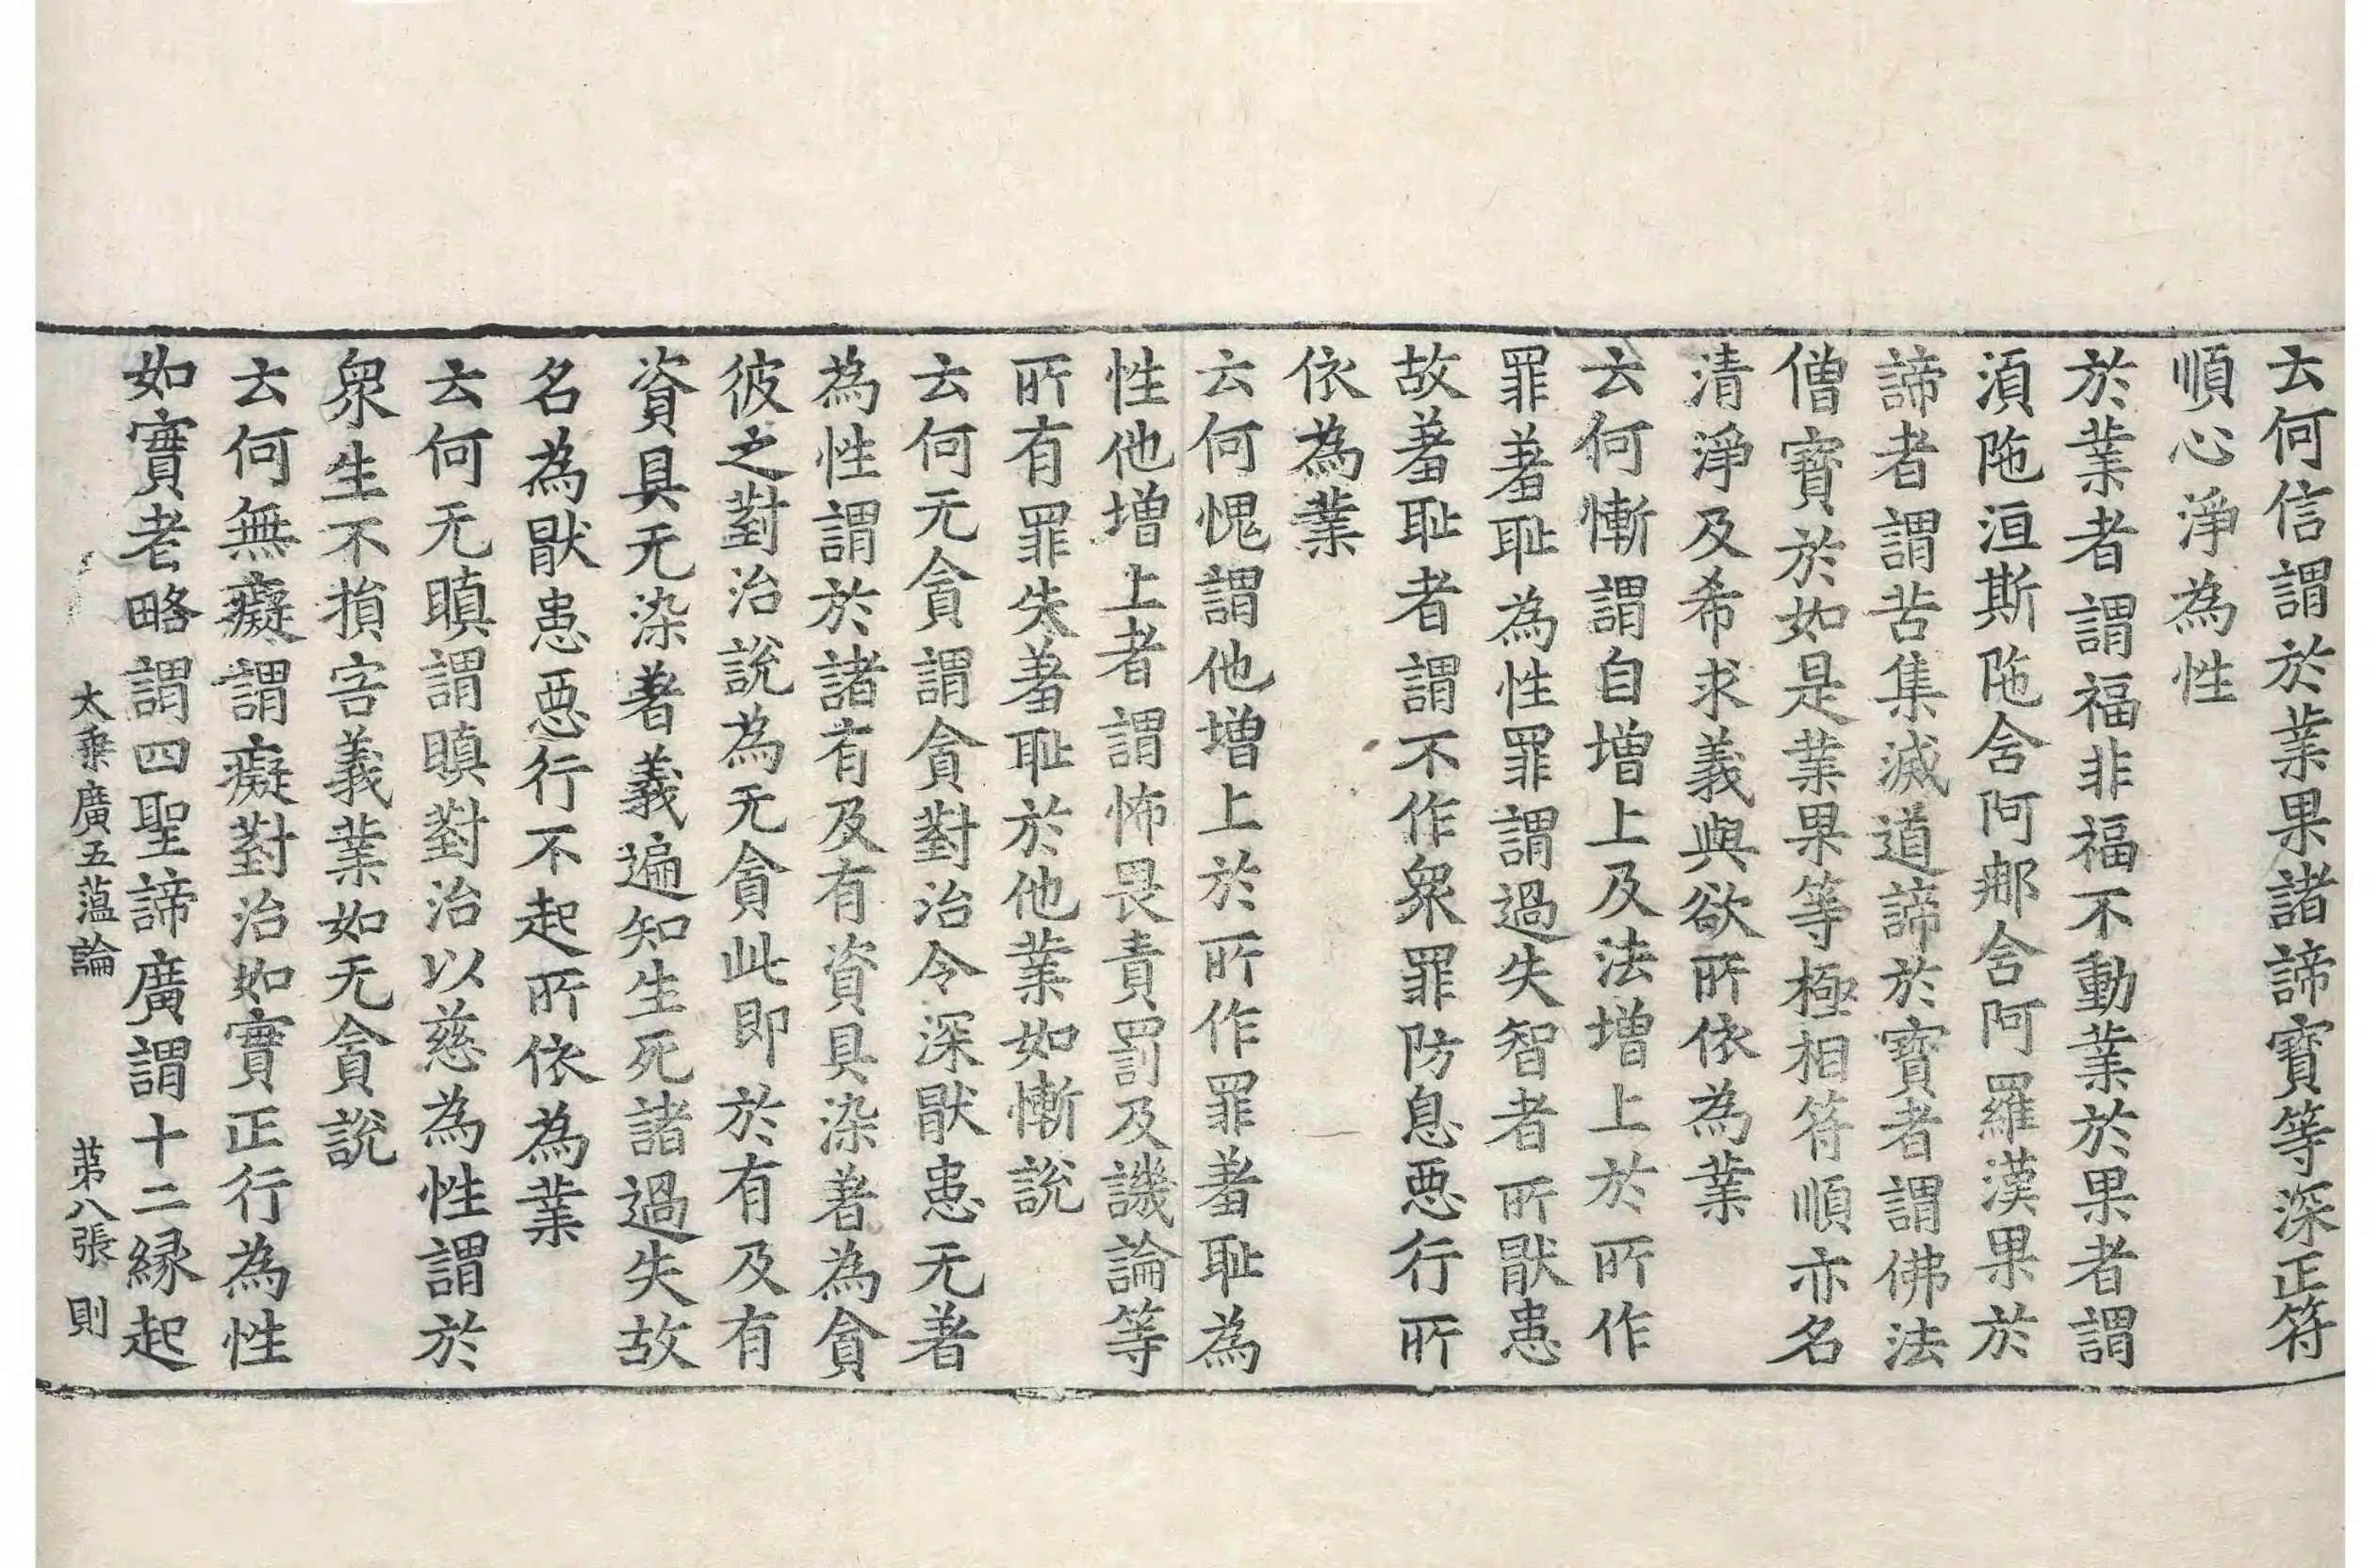 云何信謂於業果諸諦寶等深正符
順心淨為性
於業者謂福非福不動業於果者謂
湏陁洹斯陁含阿那含阿羅漢果於
諦者謂苦集滅道諦於寶者謂佛法
僧寶於如是業果等極相符順亦名
清淨及希求義與欲所依為業
云何慚謂自增上及法增上於所作
罪羞恥為性罪謂過失智者所猒患
故羞恥者謂不作衆罪防息惡行所
依為業
云何愧謂他增上於所作罪羞恥為
性他增上者謂怖畏責罰及譏論等
所有罪失羞恥於他業如慚說
云何无貪謂貪對治令深猒患无著
為性謂於諸有及有資具染著為貪
彼之對治說為无貪此即於有及有
資具无染著義遍知生死諸過失故
名為猒患惡行不起所依為業
云何无瞋謂瞋對治以慈為性謂於
衆生不損害義業如无貪說
云何無癡謂癡對治如實正行為性
如實者略謂四聖諦廣謂十二縁起
大乗廣五蕰論 苐八張 則